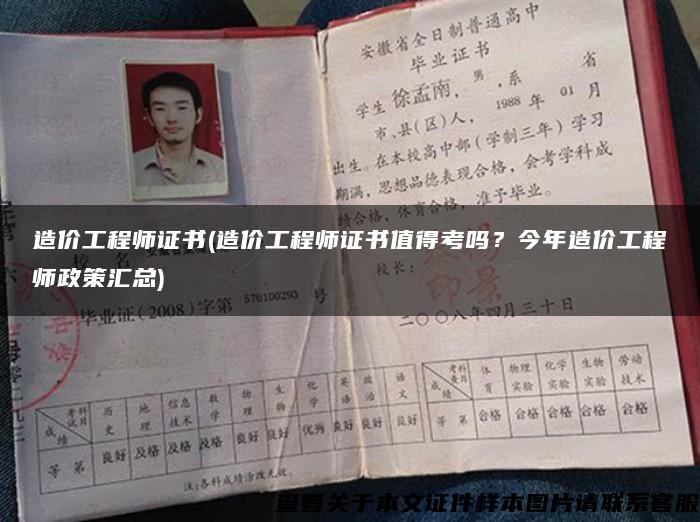 安徽省全日制普通高中
毕业证书
学生徐孟南，男，系 省
市、县(区)人，1988年01月
出生。在本校高中部(学制三年)学习
期满，思想品德表现合格，会考学科成
绩合格，体育合格，准予毕业。
造价工程师证书(造价工程师证书值得考吗？今年造价工程
师政策汇总)
校长：
毕业证(2008)字第 576100293 号
二〇〇八年四月三十日
考试科目 历史 地理 信息技术 数学 物理 生物 化学 英语 政治 语文
成绩
等第 良好 及格 及格 及格 良好 良好 优秀 良好 良好 良好
注：各科成绩涂改无效。
考查科目 体育 物理实验 化学实验 生物实验 劳动技术
成绩
等第 合格 合格 合格 合格 合格
查看关于本文证件样本图片请联系客服